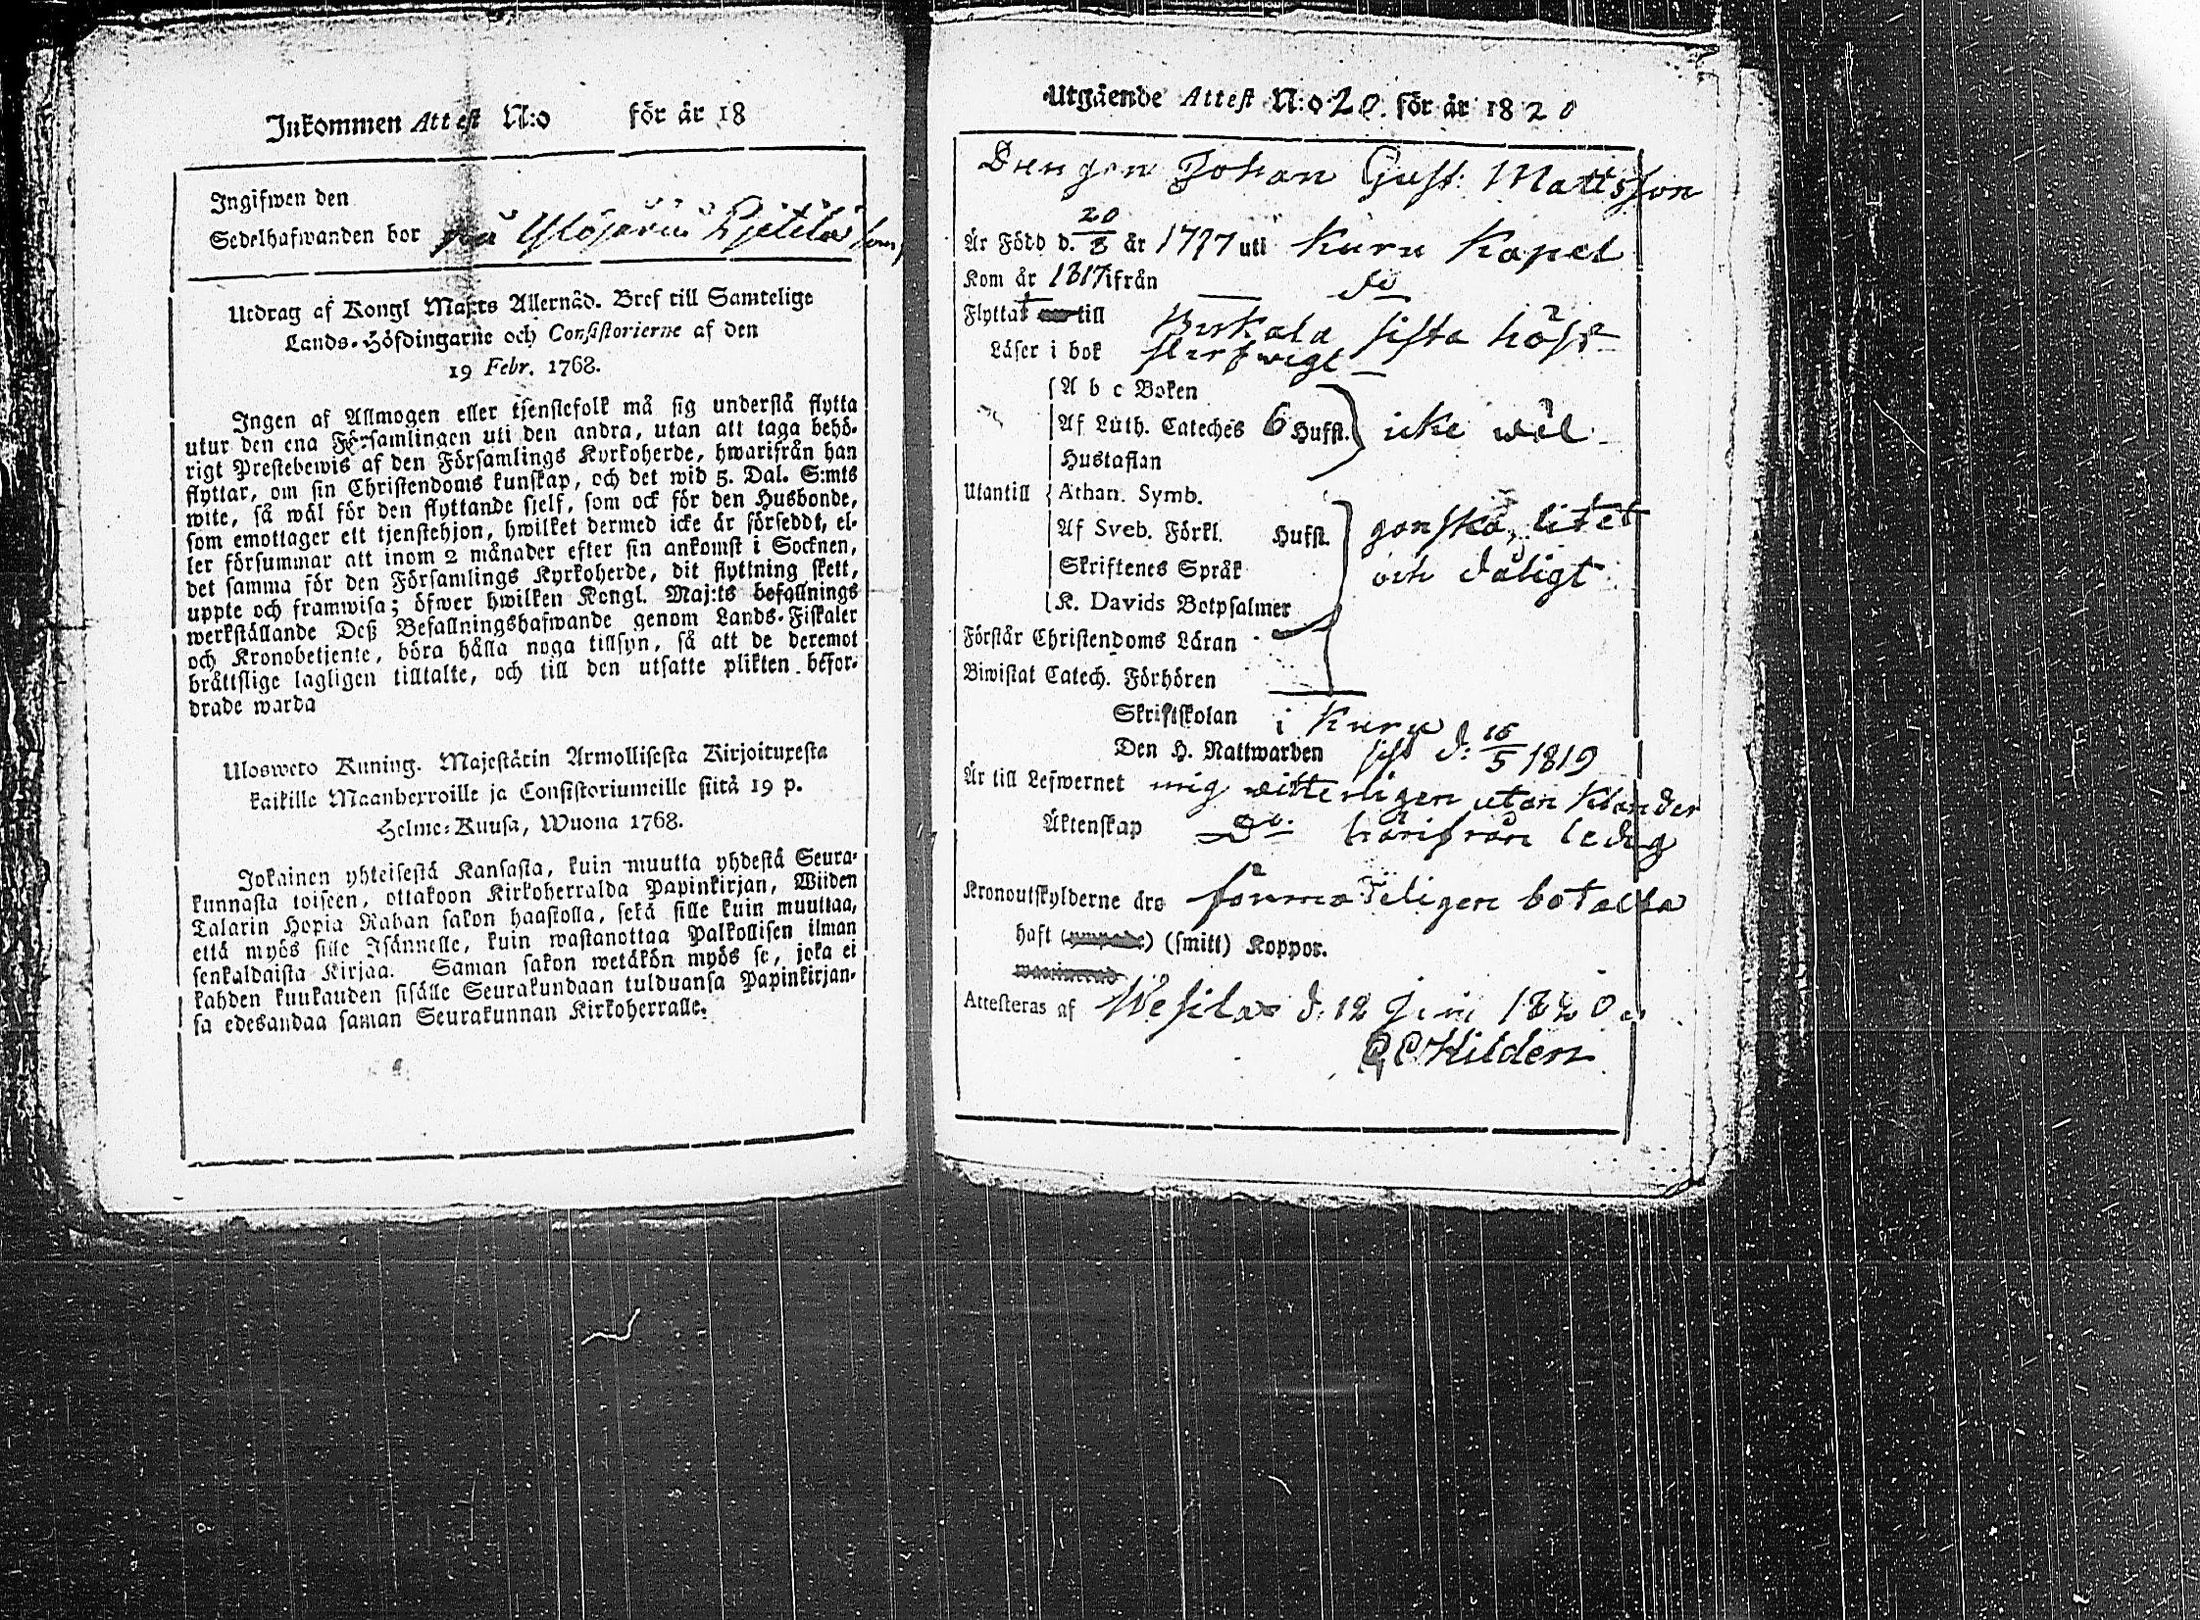 Inkommen Attest N:o för år 18
Ingifwen den
Sedelhafwanden bor på Ylöjärvi Pjetilä
Utdrag af Kongl Maj:ts Allernåd. Bref till Samtelige
Lands-Höfdingarne och Consistorierne af den
19 Febr. 1768.
Ingen af Allmogen eller tjenstefolk må sig understå flytta
utur den ena Församlingen uti den andra, utan att taga behö-
rigt Prestebewis af den Församlings Kyrkoherde, hwarifrån han
flyttar, om sin Christendoms kunskap, och det wid 5. Dal. S:mts
wite, så wäl för den flyttande sjelf, som ock för den Husbonde,
som emottager ett tjenstehjon, hwilket dermed icke är försedbt, el-
ler försummar att inom 2 månader efter sin ankomst i Socknen,
det samma för den Församlings Kyrkoherde, dit flyttning skett,
uppte och framwisa; öfwer hwilken Kongl. Maj:ts befallnings
werkställande Deß Befallningshafwande genom Lands-Fiskaler
och Kronobetjente, böra hålla noga tillsyn, så att de deremot
bråttslige lagligen tilltalte, och till den utsatte plikten befor-
drade warda
Ulosweto Kuning. Majestätin Armollisesta Kirjoituxesta
kaikille Maanherroille ja Consistoriumeille siitä 19 p.
Helme-Kuusa, Wuona 1768.
Jokainen yhteisestä Kansasta, kuin muutta yhdestä Seura-
kunnasta toiseen, ottakoon Kirkoherralda Papinkirjan, Wiiden
Talarin Hopia Rahan sakon haastolla, sekä sille kuin muuttaa,
että myös sille Isännelle, kuin wastanottaa Palkollisen ilman
senkaldaista Kirjaa. Saman sakon wetäkön myös se, joka ei
kahden kuukauden sisälle Seurakundaan tulduansa Papinkirjan-
sa edesandaa saman Seurakunnan Kirkoherralle.
Utgående Attest N:o 20. för år 1820
Drengen Johan Gust: Mattsson
Är Född d. 20/8 år 1797 uti Kuru Kapel
Kom år 1817 ifrån — do —
Flyttat till sista höst
Läser i bok
A b c Boken
Af Luth. Cateches 6 Hufst. icke wäl
Hustaflan
Utantill Athan. Symb.
Af Sveb. Förkl. Hufst. ganska litet
Skriftenes Språk och dåligt
K. Davids Botpsalmer
Förstår Christendoms Läran
Biwistat Catech. Förhören
Skriftskolan i Kuru
Den H. Nattwarden sist d: 16/5 1819
Är till Lefwernet mig witterligen utan klander
Äktenskap Do. härifrån ledig
Kronoutskylderne äro förmodeligen betalta
haft (smitt) Koppor.
Attesteras af Wesilax d. 12 Juni 1820 af
C C Hilden